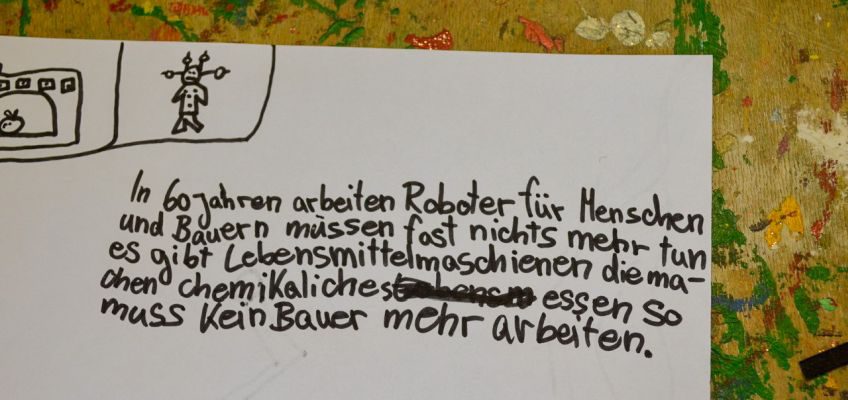 In 60 jahren arbeiten Roboter für Menschen
und Bauern müssen fast nichts mehr tun
es gibt Lebensmittelmaschienen die ma-
chen chemikaliches essen so
muss kein Bauer mehr arbeiten.